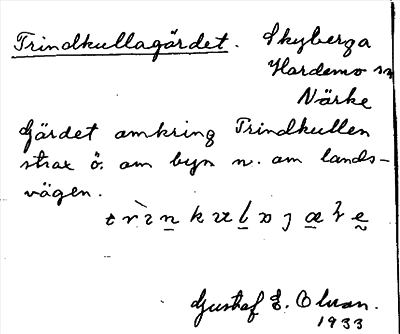 Trindkullagärdet. Skyberga
Hardemo sn
Närke
Gärdet omkring Trindkullen
strax ö. om byn n. om lands-
vägen.
Gustaf E. Olsson.
1933